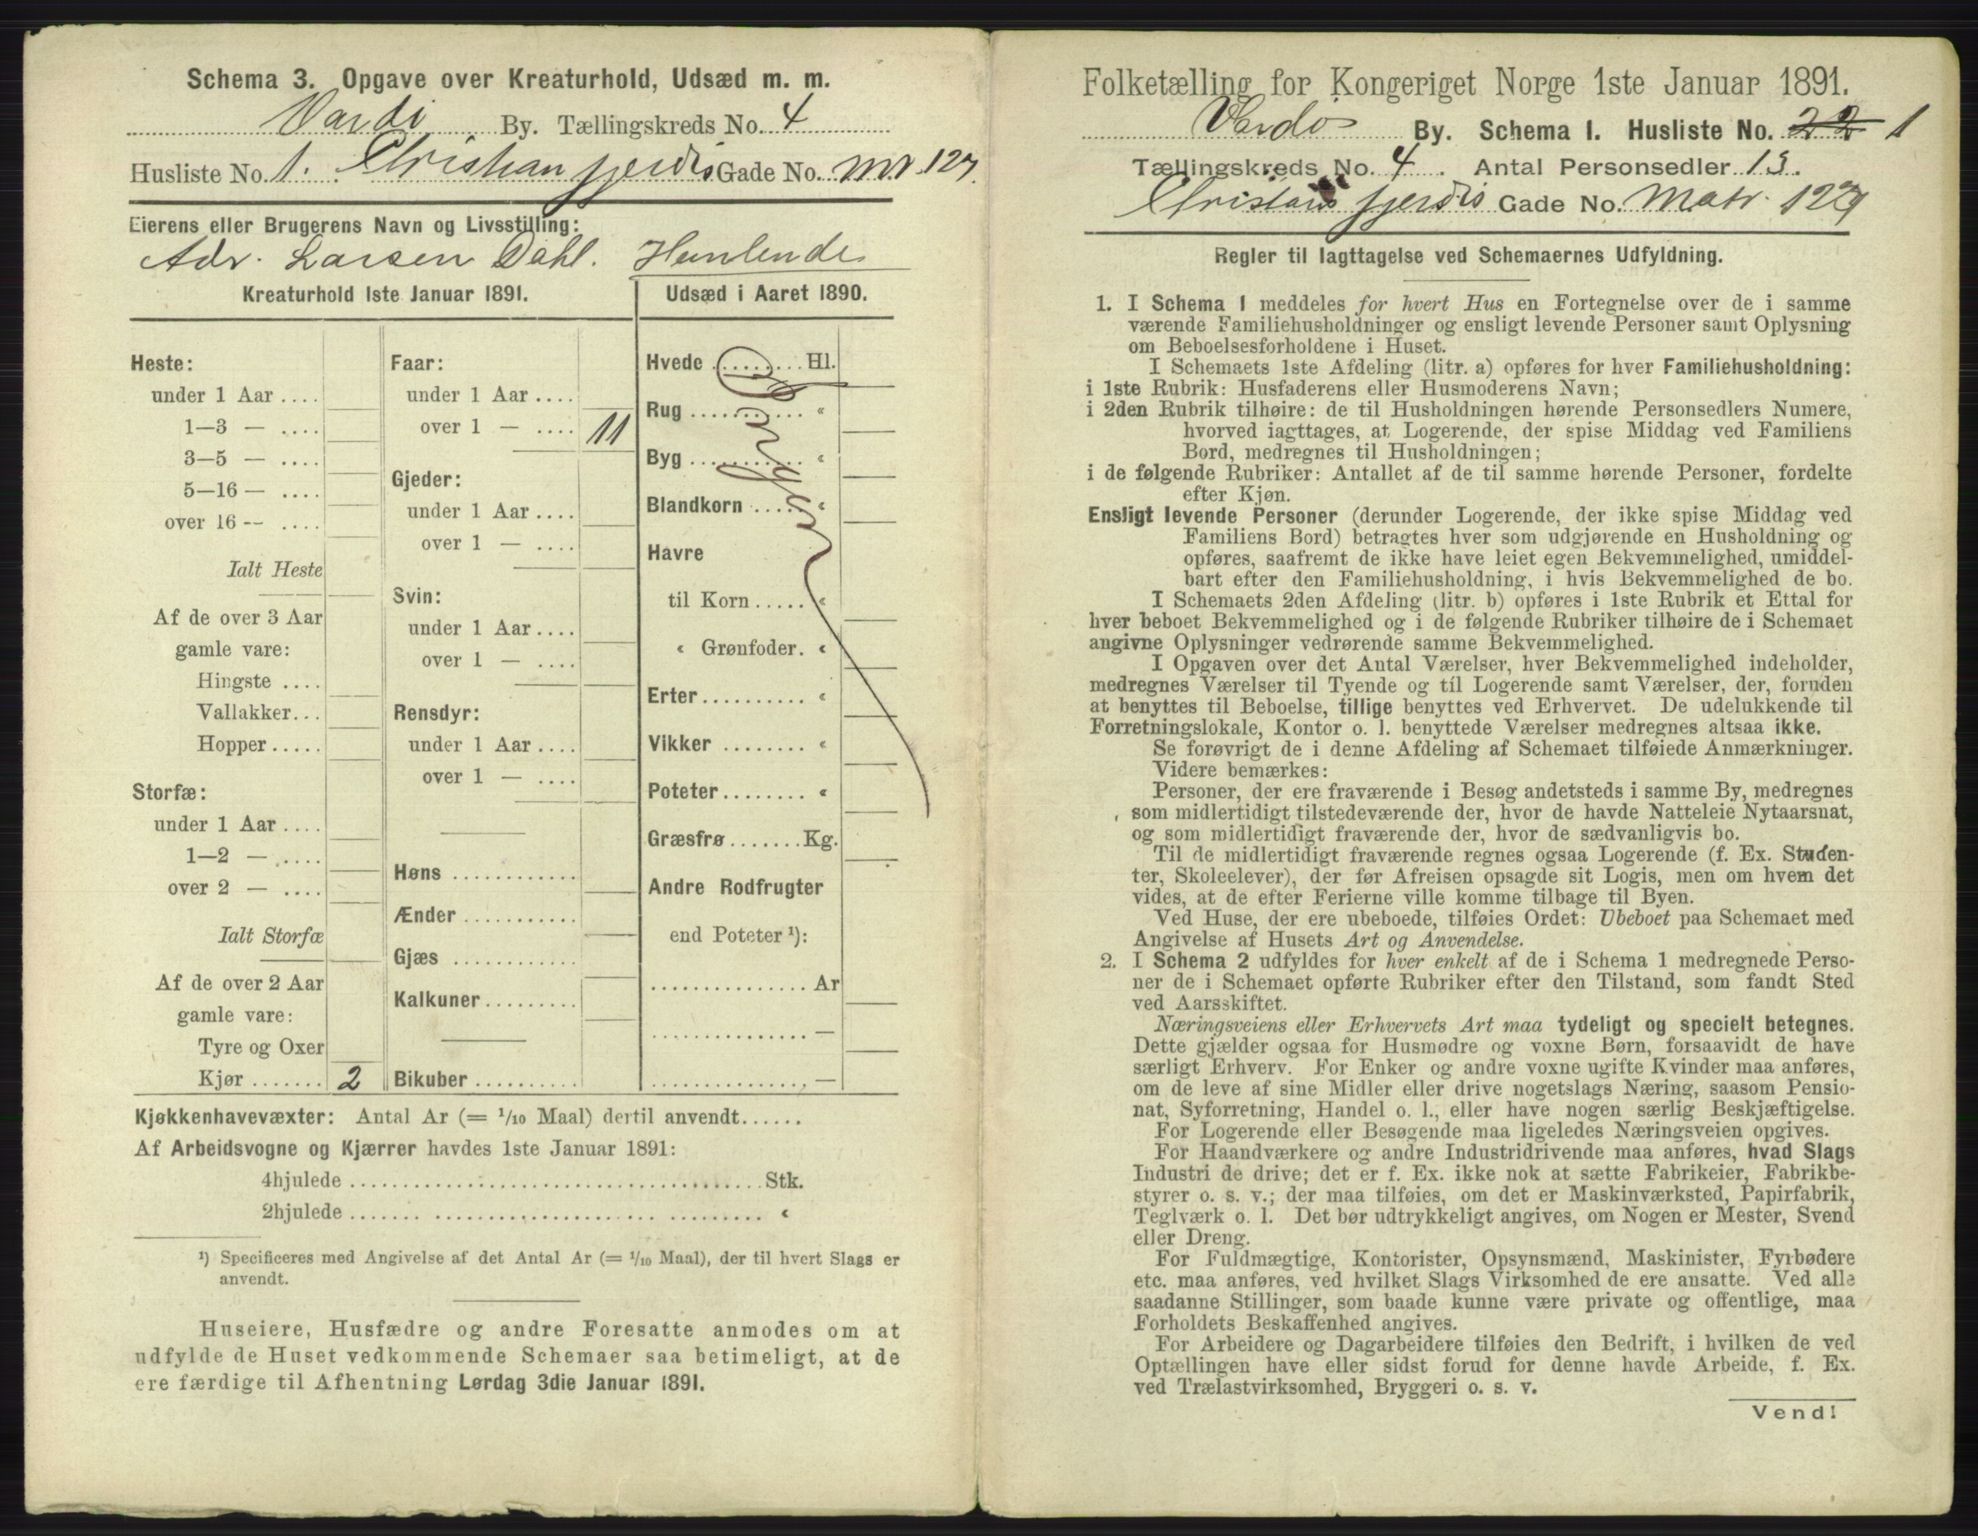 Schema 3. Opgave over Kreaturhold, Udsæd m. m.
Vardö By. Tællingskreds No. 4
Husliste No. 1. Christiansfjerdis Gade No. Mr. 127.
Eierens eller Brugerens Navn og Livsstilling:
Adr. Larsen Dahl. Hanlende
Kreaturhold 1ste Januar 1891.
Udsæd i Aaret 1890.
Heste:
under 1 Aar ....
1—3 — ....
3—5 — ....
5—16 — ....
over 16 -- ....
Ialt Heste
Af de over 3 Aar
gamle vare:
Hingste ....
Vallakker...
Hopper.....
Storfæ:
under 1 Aar ....
1—2 — ....
over 2 — ....
Ialt Storfæ
Af de over 2 Aar
gamle vare:
Tyre og Oxer
Kjør ....... 2
Faar:
under 1 Aar ....
over 1 — .... 11
Gjeder:
under 1 Aar ....
over 1 — ....
Svin:
under 1 Aar ....
over 1 — ....
Rensdyr:
under 1 Aar ....
over 1 — ....
Høns ............
Ænder ...........
Gjæs ............
Kalkuner.........
Bikuber ..........
Hvede ......... Hl.
Rug ........... «
Byg ........... «
Blandkorn ..... «
Havre
til Korn ..... «
« Grønfoder. «
Erter.......... «
Vikker ........ «
Poteter........ «
Græsfrø.......Kg.
Andre Rodfrugter
end Poteter ¹):
............... Ar
............... —
............... —
Kjøkkenhavevæxter: Antal Ar (= 1/10 Maal) dertil anvendt......
Af Arbeidsvogne og Kjærrer havdes 1ste Januar 1891:
4hjulede ........................................Stk.
2hjulede ........................................ «
¹) Specificeres med Angivelse af det Antal Ar (= 1/10 Maal), der til hvert Slags er
anvendt.
Huseiere, Husfædre og andre Foresatte anmodes om at
udfylde de Huset vedkommende Schemaer saa betimeligt, at de
ere færdige til Afhentning Lørdag 3die Januar 1891.
Folketælling for Kongeriget Norge 1ste Januar 1891.
Vardö By. Schema 1. Husliste No. 22 1
Tællingskreds No. 4. Antal Personsedler 13.
Christiansfjerdis Gade No. Matr. 127
Regler til Iagttagelse ved Schemaernes Udfyldning.
1. I Schema 1 meddeles for hvert Hus en Fortegnelse over de i samme
værende Familiehusholdninger og ensligt levende Personer samt Oplysning
om Beboelsesforholdene i Huset.
I Schemaets 1ste Afdeling (litr. a) opføres for hver Familiehusholdning:
i 1ste Rubrik: Husfaderens eller Husmoderens Navn;
i 2den Rubrik tilhøire: de til Husholdningen hørende Personsedlers Numere,
hvorved iagttages, at Logerende, der spise Middag ved Familiens
Bord, medregnes til Husholdningen;
i de følgende Rubriker: Antallet af de til samme hørende Personer, fordelte
efter Kjøn.
Ensligt levende Personer (derunder Logerende, der ikke spise Middag ved
Familiens Bord) betragtes hver som udgjørende en Husholdning og
opføres, saafremt de ikke have leiet egen Bekvemmelighed, umiddel-
bart efter den Familiehusholdning, i hvis Bekvemmelighed de bo.
I Schemaets 2den Afdeling (litr. b) opføres i 1ste Rubrik et Ettal for
hver beboet Bekvemmelighed og i de følgende Rubriker tilhøire de i Schemaet
angivne Oplysninger vedrørende samme Bekvemmelighed.
I Opgaven over det Antal Værelser, hver Bekvemmelighed indeholder,
medregnes Værelser til Tyende og til Logerende samt Værelser, der, foruden
at benyttes til Beboelse, tillige benyttes ved Erhvervet. De udelukkende til
Forretningslokale, Kontor o. l. benyttede Værelser medregnes altsaa ikke.
Se forøvrigt de i denne Afdeling af Schemaet tilføiede Anmærkninger.
Videre bemærkes:
Personer, der ere fraværende i Besøg andetsteds i samme By, medregnes
som midlertidigt tilstedeværende der, hvor de havde Natteleie Nytaarsnat,
og som midlertidigt fraværende der, hvor de sædvanligvis bo.
Til de midlertidigt fraværende regnes ogsaa Logerende (f. Ex. Studen-
ter, Skoleelever), der før Afreisen opsagde sit Logis, men om hvem det
vides, at de efter Ferierne ville komme tilbage til Byen.
Ved Huse, der ere ubeboede, tilføies Ordet: Ubeboet paa Schemaet med
Angivelse af Husets Art og Anvendelse.
2. I Schema 2 udfyldes for hver enkelt af de i Schema 1 medregnede Perso-
ner de i Schemaet opførte Rubriker efter den Tilstand, som fandt Sted
ved Aarsskiftet.
Næringsveiens eller Erhvervets Art maa tydeligt og specielt betegnes.
Dette gjælder ogsaa for Husmødre og voxne Børn, forsaavidt de have
særligt Erhverv. For Enker og andre voxne ugifte Kvinder maa anføres,
om de leve af sine Midler eller drive nogetslags Næring, saasom Pensio-
nat, Syforretning, Handel o. l., eller have nogen særlig Beskjæftigelse.
For Logerende eller Besøgende maa ligeledes Næringsveien opgives.
For Haandværkere og andre Industridrivende maa anføres, hvad Slags
Industri de drive; det er f. Ex. ikke nok at sætte Fabrikeier, Fabrikbe-
styrer o. s. v.; der maa tilføies, om det er Maskinværksted, Papirfabrik,
Teglværk o. l. Det bør udtrykkeligt angives, om Nogen er Mester, Svend
eller Dreng.
For Fuldmægtige, Kontorister, Opsynsmænd, Maskinister, Fyrbødere
etc. maa anføres, ved hvilket Slags Virksomhed de ere ansatte. Ved alle
saadanne Stillinger, som baade kunne være private og offentlige, maa
Forholdets Beskaffenhed angives.
For Arbeidere og Dagarbeidere tilføies den Bedrift, i hvilken de ved
Optællingen have eller sidst forud for denne havde Arbeide, f. Ex.
ved Trælastvirksomhed, Bryggeri o. s. v.
Vend!